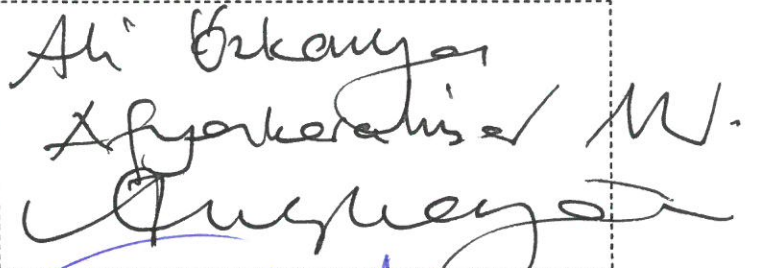 Ali Özkaya
Afyonkarahisar Mv.